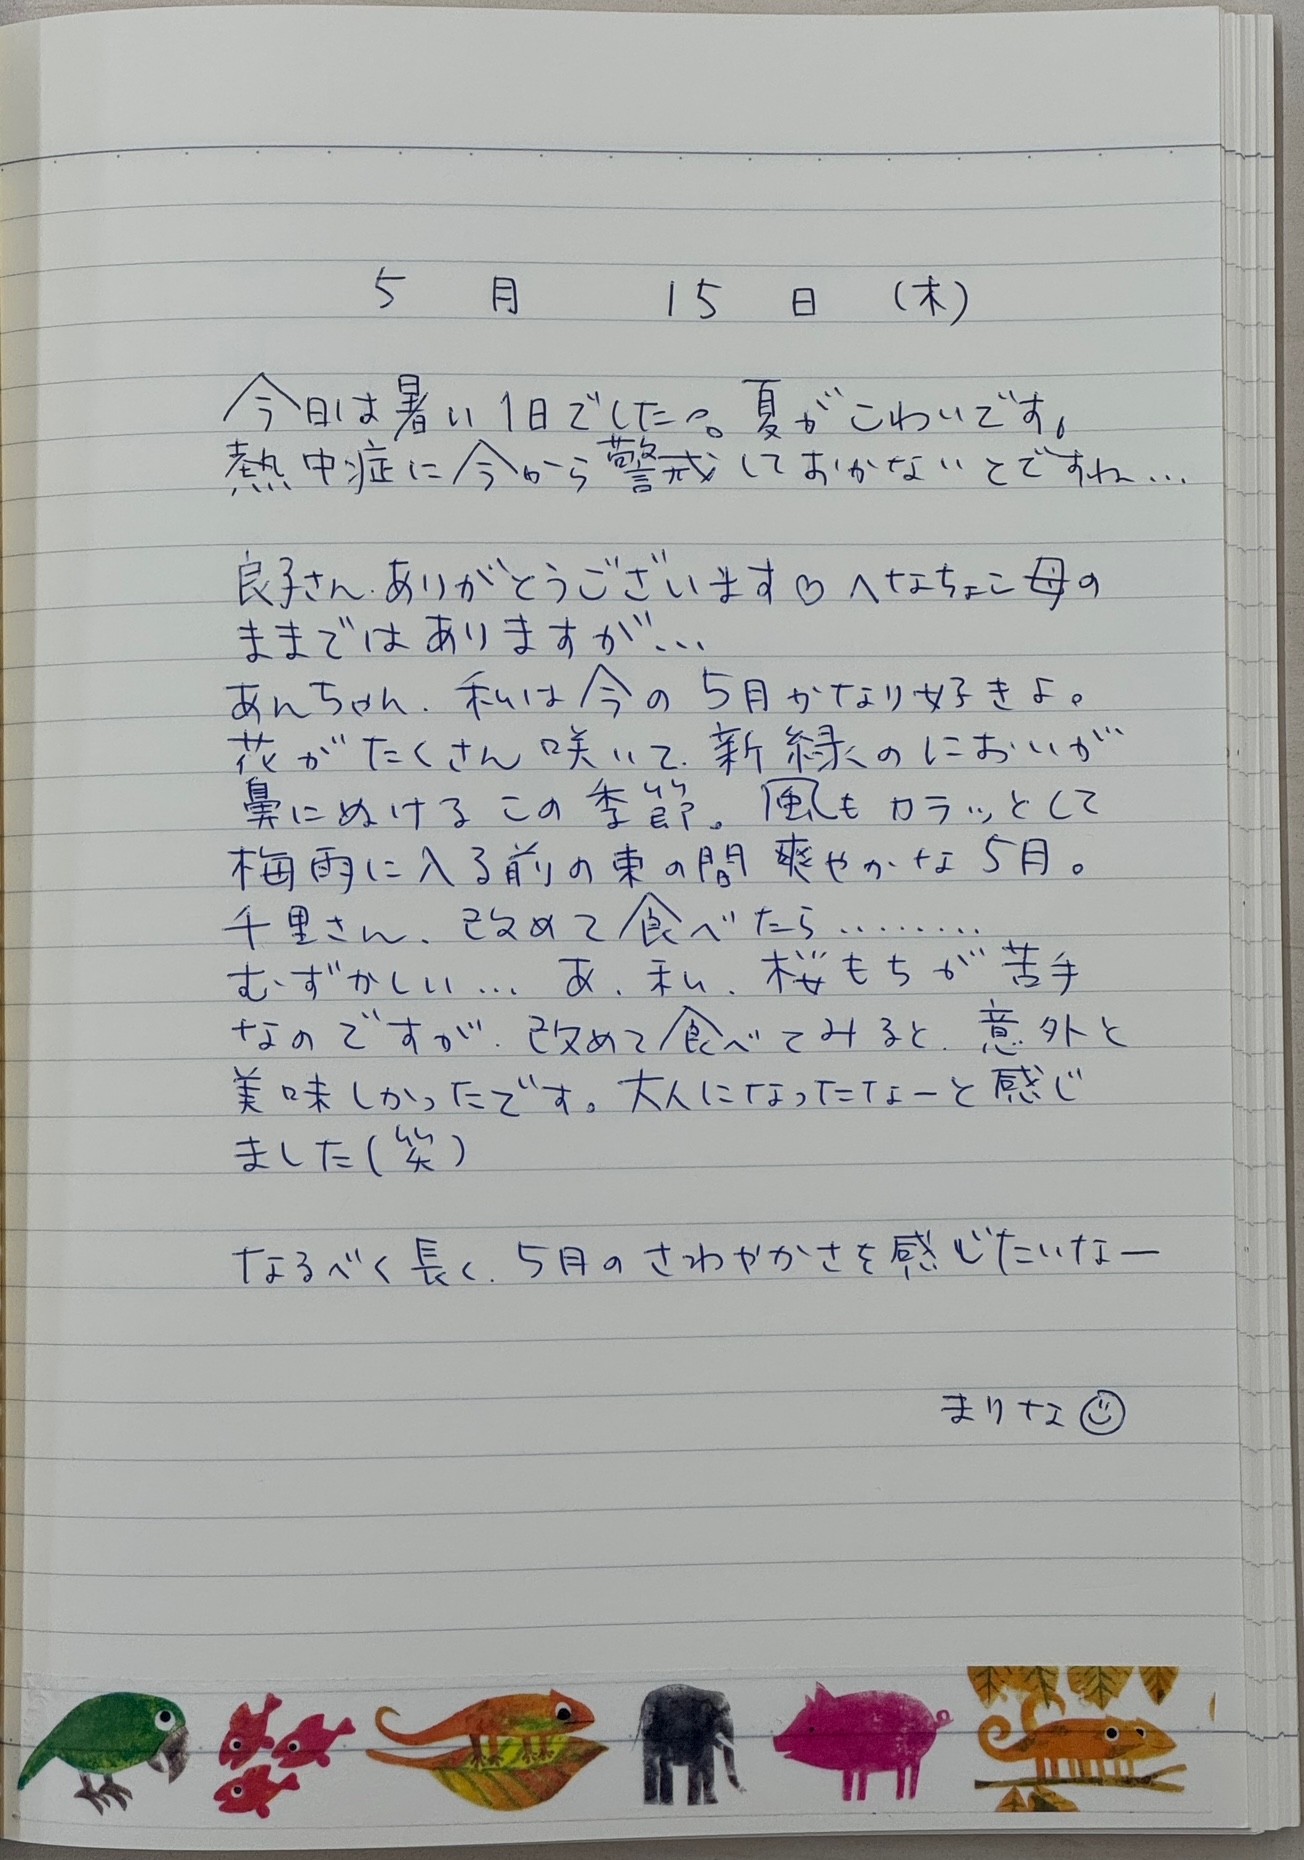 5月 15日 (木)
今日は暑い1日でした〜。夏がこわいです。
熱中症に今から警戒しておかないとですね…
良子さん、ありがとうございます♡ へなちょこ母の
ままではありますが…
あんちゃん、私は今の5月かなり好きよ。
花がたくさん咲いて、新緑のにおいが
鼻にぬけるこの季節。風もカラッとして
梅雨に入る前の束の間 爽やかな5月。
千里さん、改めて食べたら………
むずかしい… あ、私、桜もちが苦手
なのですが、改めて食べてみると、意外と
美味しかったです。大人になったなーと感じ
ました(笑)
なるべく長く、5月のさわやかさを感じたいなー
まりな☺